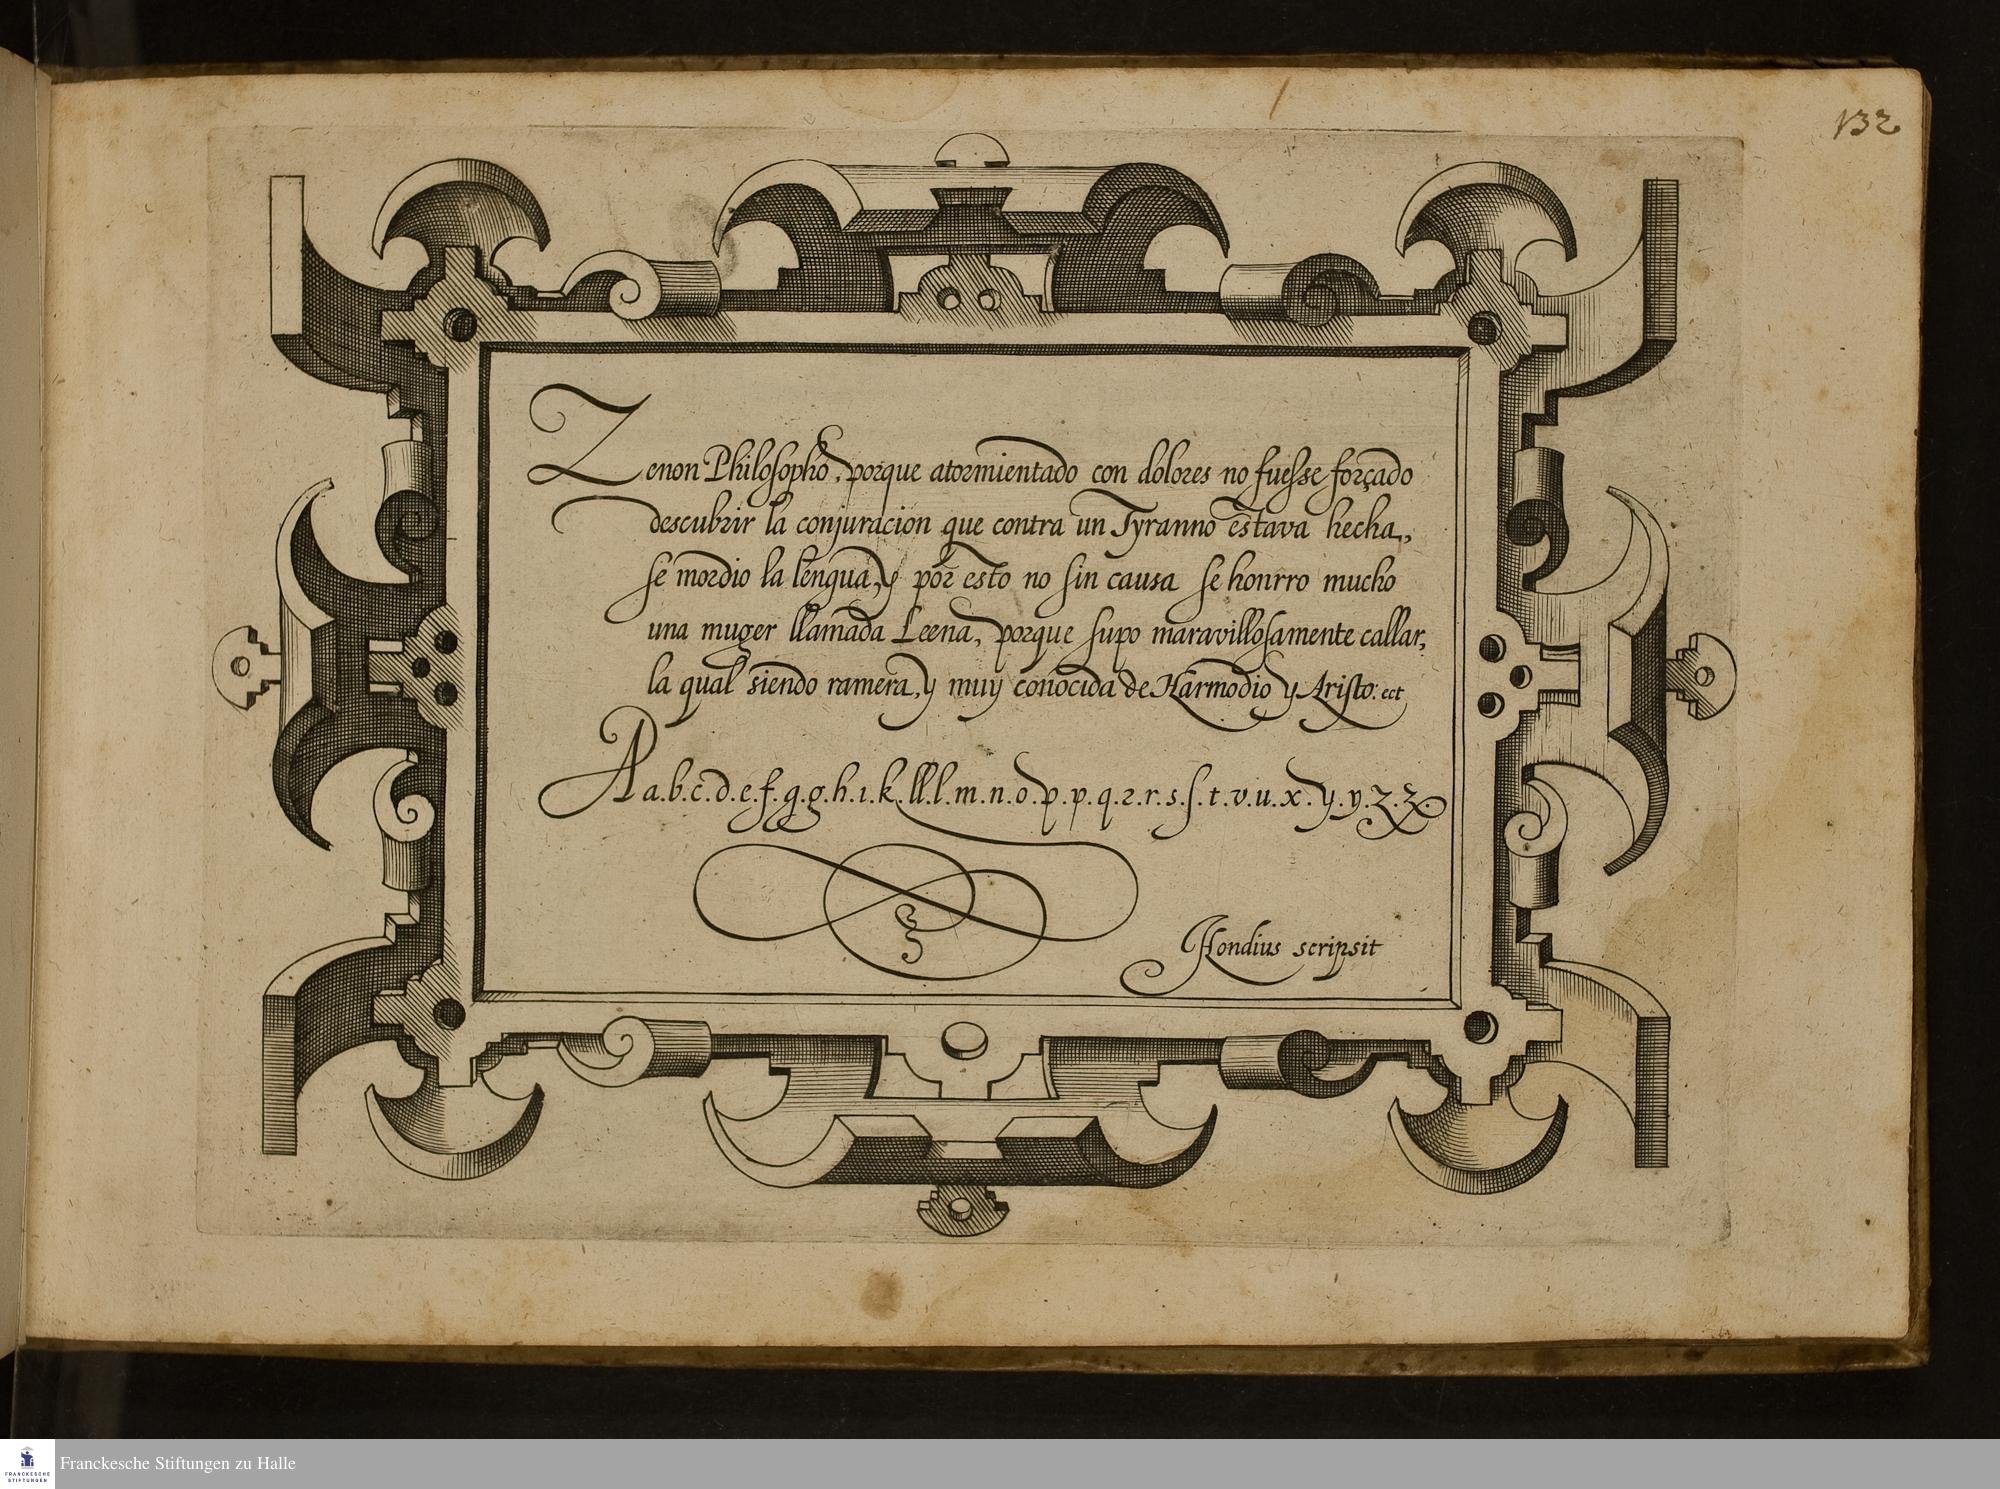 132
Zenon Philosopho, porque atormientado con dolores no fuesse forçado
descubrir la conjuracion que contra un Tyranno estava hecha,
se mordio la lengua, y por esto no sin causa se honrro mucho
una muger llamada Leena, porque supo maravillosamente callar,
la qual siendo ramera, y muy conocida de Harmodio y Aristo: ect
A a.b.c.d.e.f.g.g.h.i.k.ll.l.m.n.o.p.p.q.r.r.s.s.t.v.u.x.y.y.z.z.
Hondius scripsit
FRANCKESCHE
STIFTUNGEN
Franckesche Stiftungen zu Halle